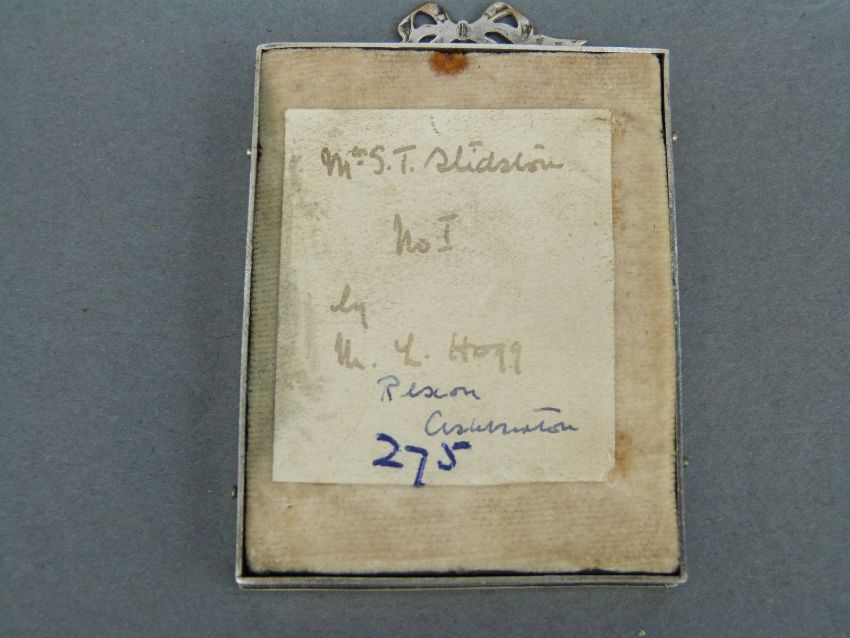 Mrs S. T. Stidston
No I
by
M. L. Hogg
Rexon
Ashburton
275